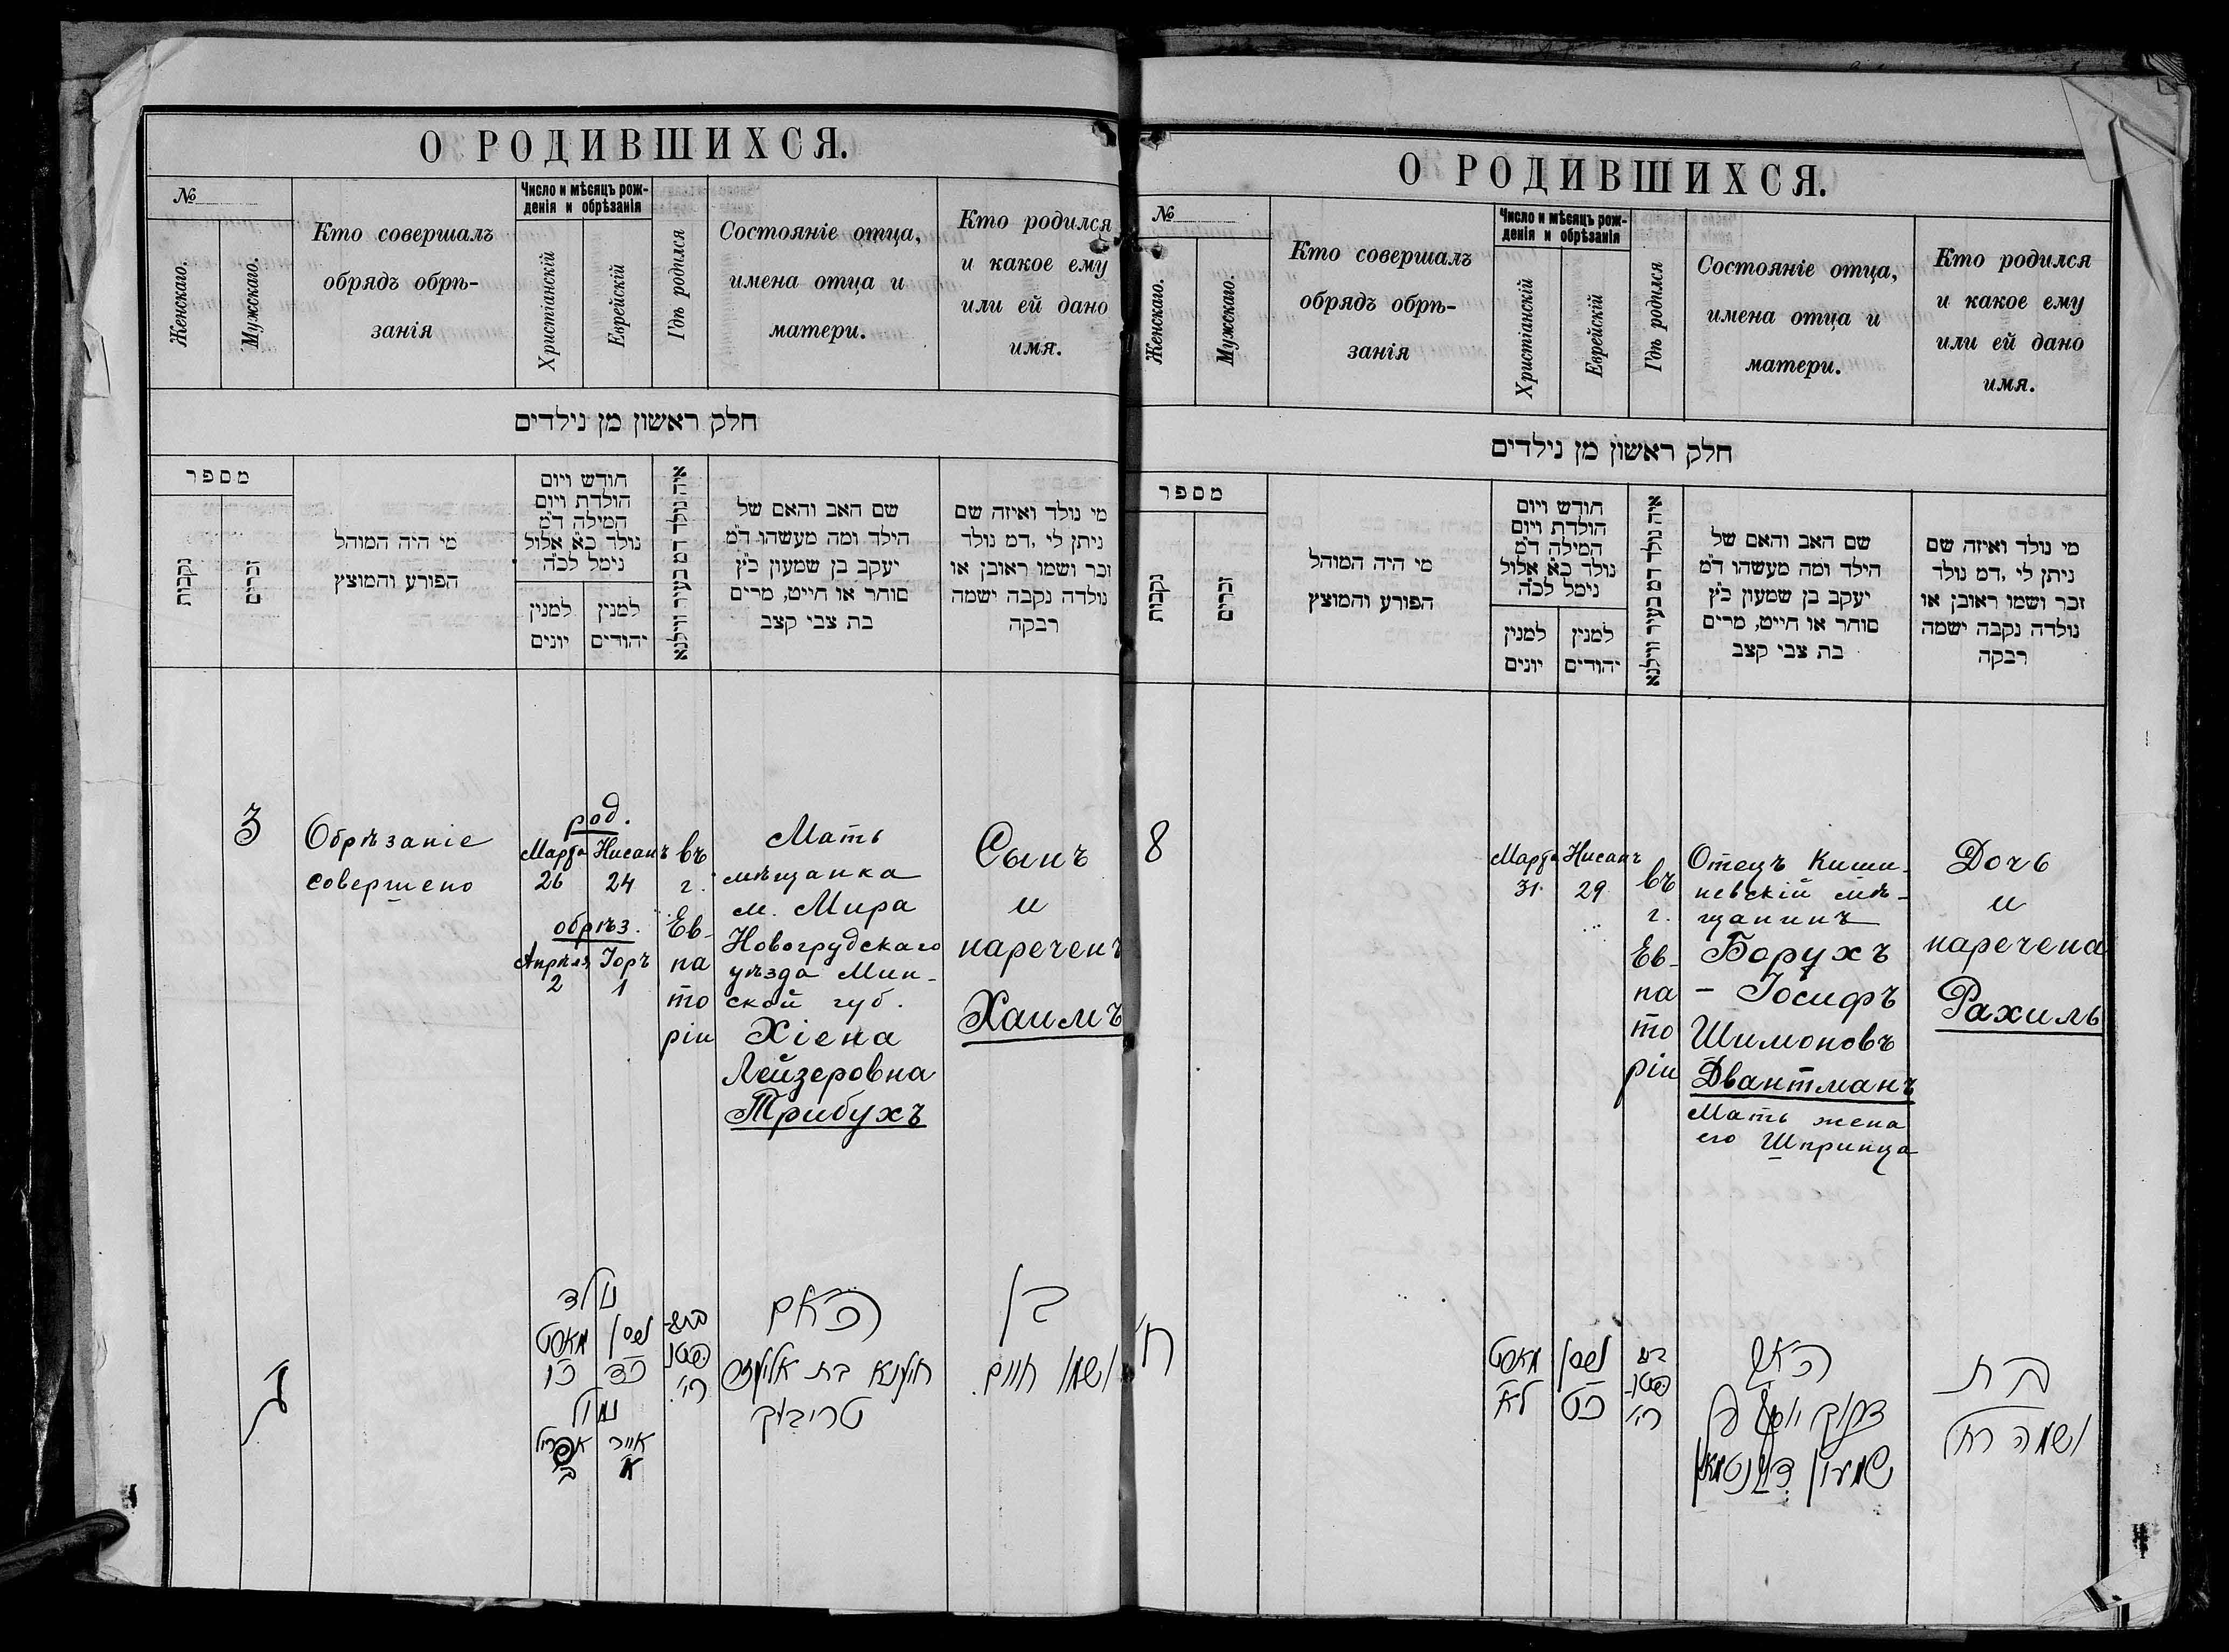 О РОДИВШИХСЯ.
№
Женскаго.
Мужскаго.
Кто совершалъ
обрядъ обрѣ-
занія
Число и мѣсяцъ рож-
денія и обрѣзанія
Христіанскій
Еврейскій
Гдѣ родился
Состояніе отца,
имена отца и
матери.
Кто родился
и какое ему
или ей дано
имя.
חלק ראשון מן נילדים
מספר
נקבות
זכרים
מי היה המוהל
הפורע והמוצץ
חודש ויום
הולדת ויום
המילה ד״מ
נולד כ״א אלול
נימל לכ״ה
למנין
יונים
למנין
יהודים
איה נולד דמ בעיר ווילנא
שם האב והאם של
הילד ומה מעשהו ד״מ
יעקב בן שמעון כ״ץ
סוחר או חייט, מרים
בת צבי קצב
מי נולד ואיזה שם
ניתן לי, דמ נולד
זכר ושמו ראובן או
נולדה נקבה ישמה
רבקה
3
Обрѣзаніе
совершено
род.
Марта
26
Нисанъ
24
обрѣз.
Апрѣля
2
Іоръ
1
въ
г.
Ев-
па
то
ріи
Мать
мѣщанка
м. Мира
Новогрудскаго
уѣзда Мин-
ской губ.
Хіена
Лейзеровна
Трибухъ
Сынъ
и
нареченъ
Хаимъ
ג
נולד
מארט
כו
ניסן
כד
נמול
אפריל
ב
אייר
א
האם
חיענא בת אליעזר
טריבוך
בן
ושמו חיים.
О РОДИВШИХСЯ.
№
Женскаго.
Мужскаго.
Кто совершалъ
обрядъ обрѣ-
занія
Число и мѣсяцъ рож-
денія и обрѣзанія
Христіанскій
Еврейскій
Гдѣ родился
Состояніе отца,
имена отца и
матери.
Кто родился
и какое ему
или ей дано
имя.
חלק ראשון מן נילדים
מספר
נקבות
זכרים
מי היה המוהל
הפורע והמוצץ
חודש ויום
הולדת ויום
המילה ד״מ
נולד כ״א אלול
נימל לכ״ה
למנין
יונים
למנין
יהודים
איה נולד דמ בעיר ווילנא
שם האב והאם של
הילד ומה מעשהו ד״מ
יעקב בן שמעון כ״ץ
סוחר או חייט, מרים
בת צבי קצב
מי נולד ואיזה שם
ניתן לי, דמ נולד
זכר ושמו ראובן או
נולדה נקבה ישמה
רבקה
8
Марта
31.
Нисанъ
29
въ
г.
Ев-
па
то
ріи
Отецъ Киши-
невскій мѣ-
щанинъ
Борухъ
- Іосифъ
Шимоновъ
Двантманъ
Мать жена
его Шпринца
Дочь
и
наречена
Рахиль
ח
מארט
לא
ניסן
כט
האב
ברוך יוסף בן
שמעון דוואנטמאן
בת
ושמה רחל